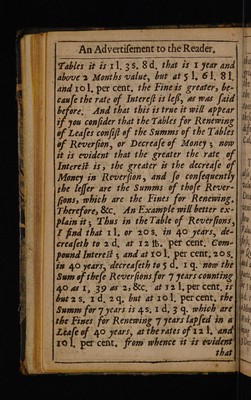 An Advertiſement to the Reader,
Tables it is 1 l. 3 s. 8 d. that is 1 year and
above 2 Months value, but at 5 l. 6 l. 8 l.
and 10 l. per cent. the Fine is greater, be-
cauſe the rate of Intereſt is leſs, as was ſaid
before. And that this is true it will appear
if you conſider that the Tables for Renewing
of Leaſes conſiſt of the Summs of the Tables
of Reverſion, or Decreaſe of Money; now
it is evident that the greater the rate of
Intereſt is, the greater is the decreaſe of
Money in Reverſion, and ſo conſequently
the leſſer are the Summs of thoſe Rever-
ſions, which are the Fines for Renewing.
Therefore, &c. An Example will better ex-
plain it; Thus in the Table of Reverſions,
I find that 1 l. or 20 s. in 40 years, de-
creaſeth to 2 d. at 12 lb. per cent. Com-
pound Intereſt; and at 10 l. per cent. 20 s.
in 40 years, decreaſeth to 5 d. 1 q. now the
Sum of theſe Reverſions for 7 years counting
40 as 1, 39 as 2, &c. at 12 l. per cent. is
but 2 s. 1 d. 2 q. but at 10 l. per cent. the
Summ for 7 years is 4 s. 1 d. 3 q. which are
the Fines for Renewing 7 years lapſed in a
Leaſe of 40 years, at the rates of 12 l. and
10 l. per cent. from whence it is evident
that